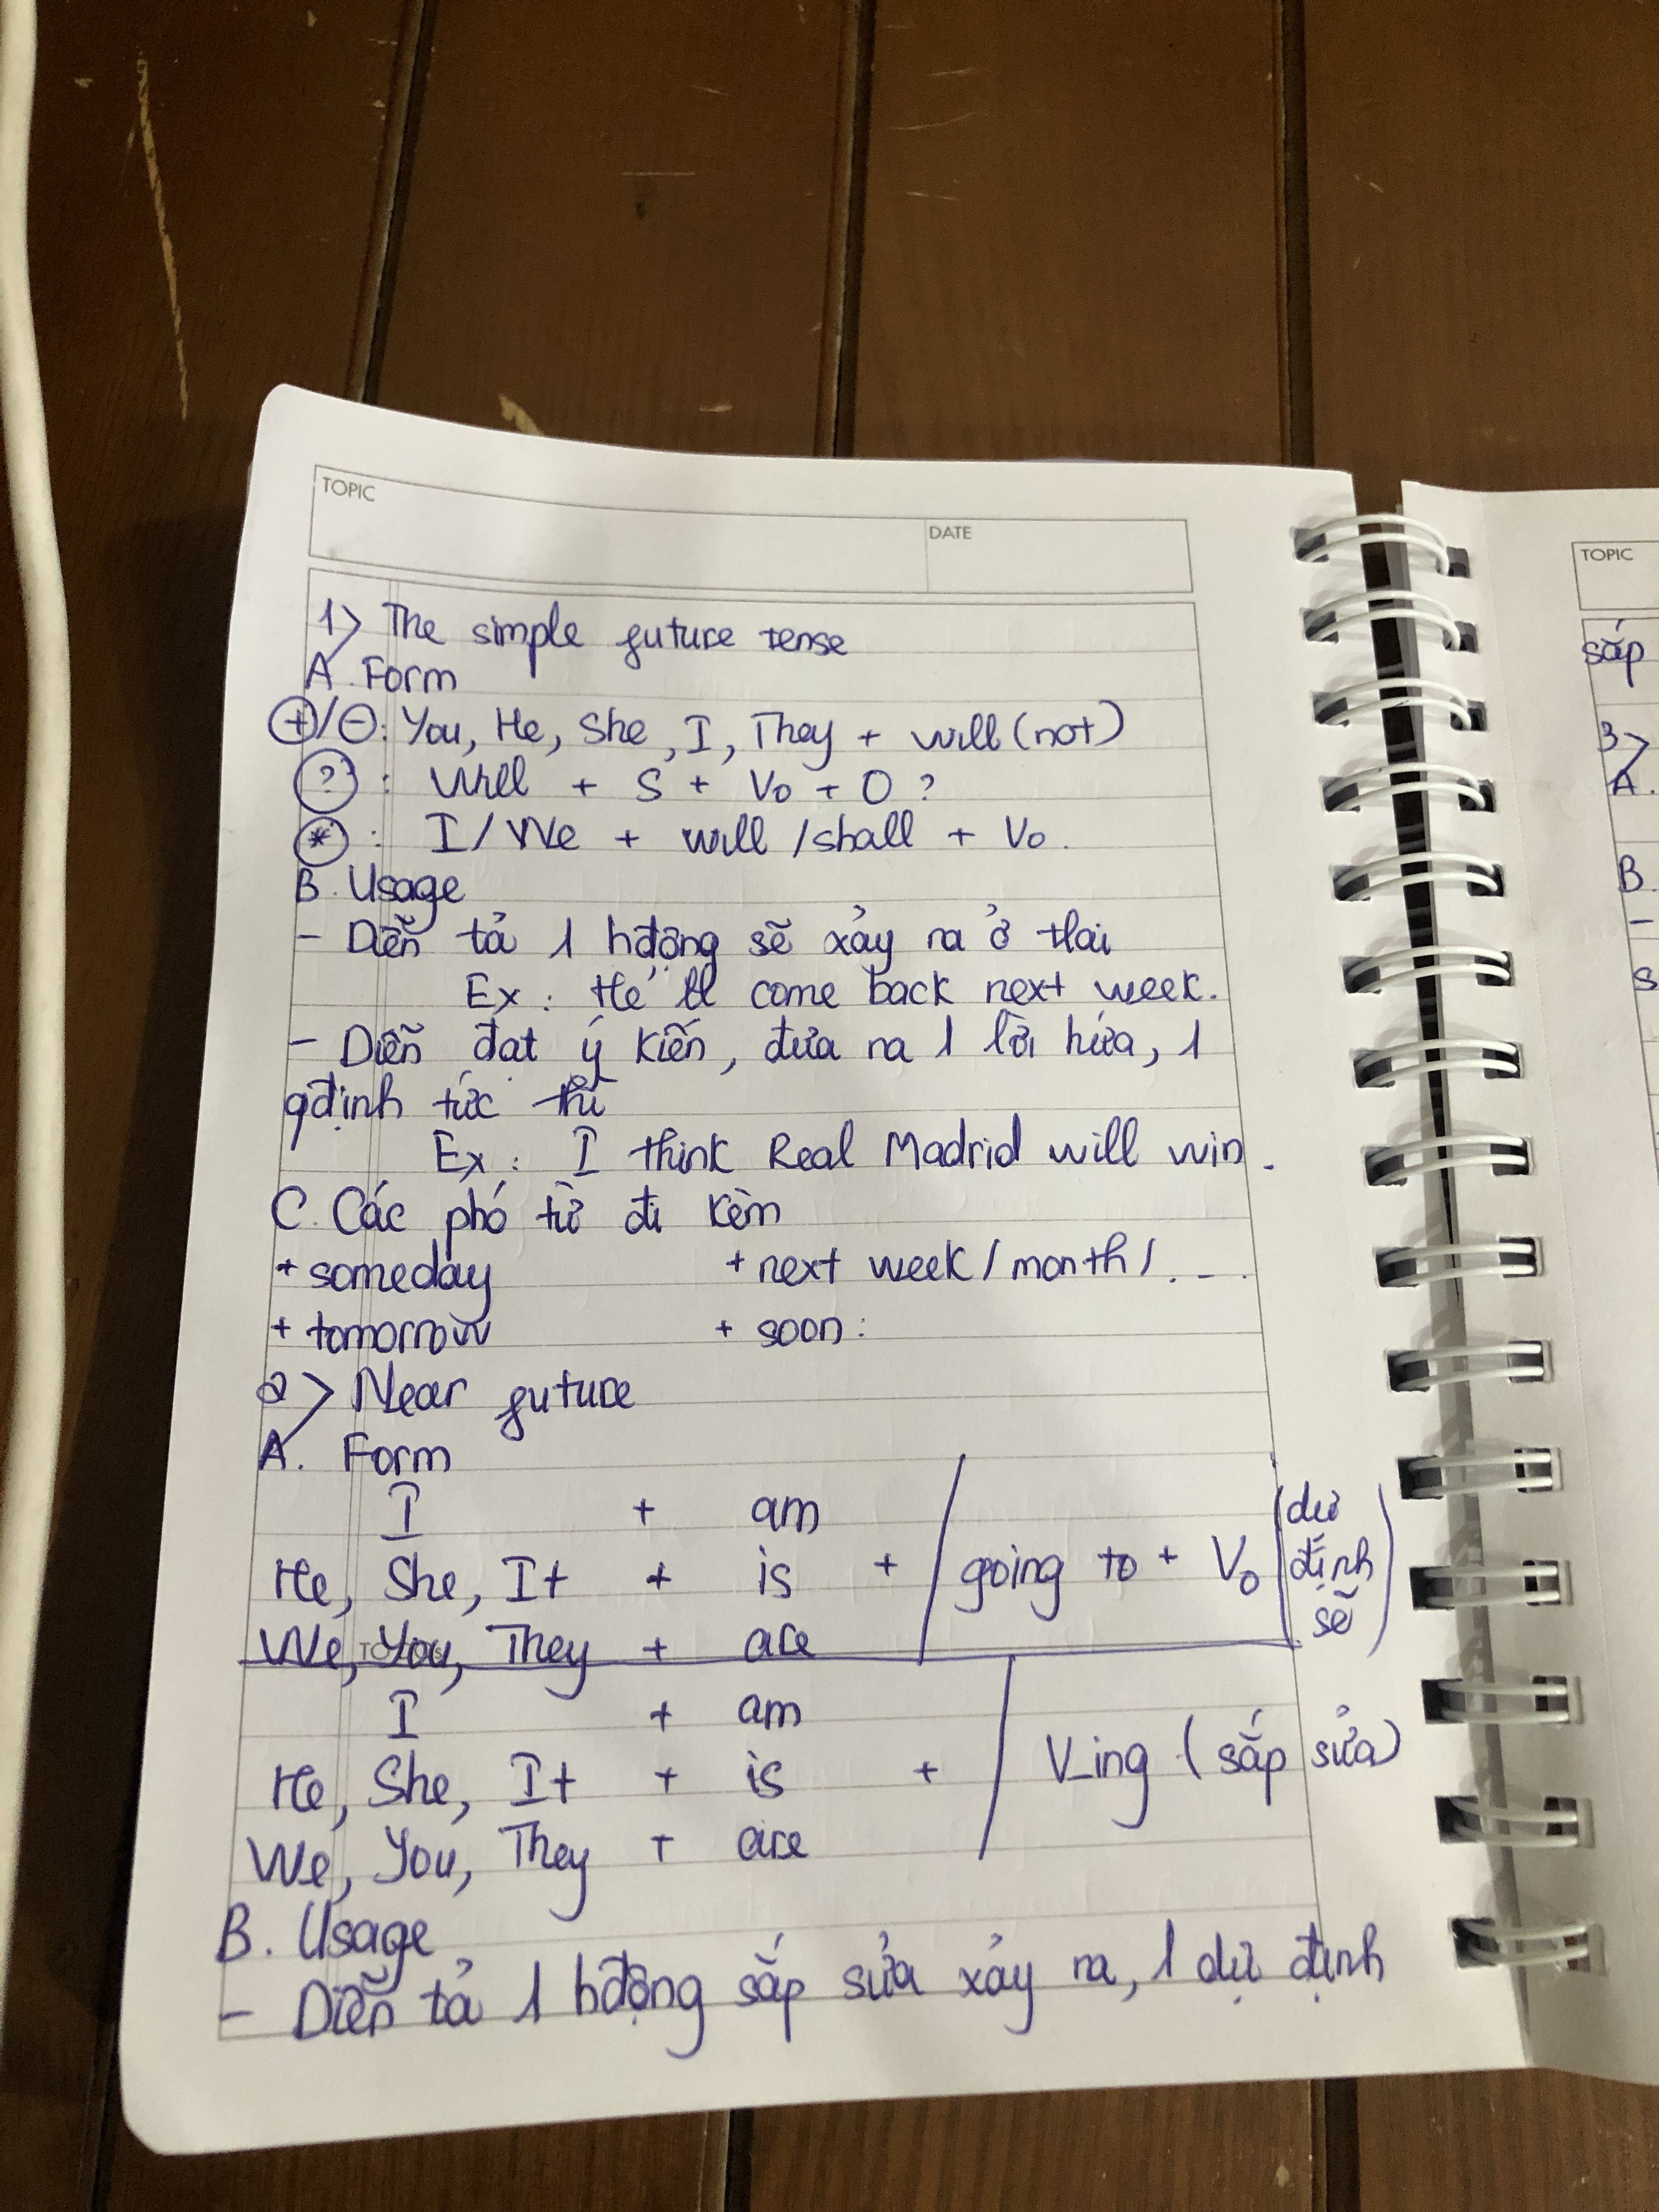 TOPIC
DATE
1> The simple future tense
A. Form
(+)/(-): You, He, She, I, They + will (not)
(?) : Will + S + V₀ + O ?
(*) : I/We + will /shall + V₀.
B. Usage
- Diễn tả 1 hđộng sẽ xảy ra ở tlai
Ex : He'll come back next week.
- Diễn đạt ý kiến, đưa ra 1 lời hứa, 1
qđịnh tức thì
Ex : I think Real Madrid will win.
C. Các phó từ đi kèm
+ someday + next week / month / ....
+ tomorrow + soon :
2> Near future
A. Form
I + am
He, She, It + is + going to + V₀ (dự định sẽ)
We, You, They + are
I + am
He, She, It + is + V_ing (sắp sửa)
We, You, They + are
B. Usage
- Diễn tả 1 hđộng sắp sửa xảy ra, 1 dự định
TOPIC
sắp
3>
A.
B.
-
s